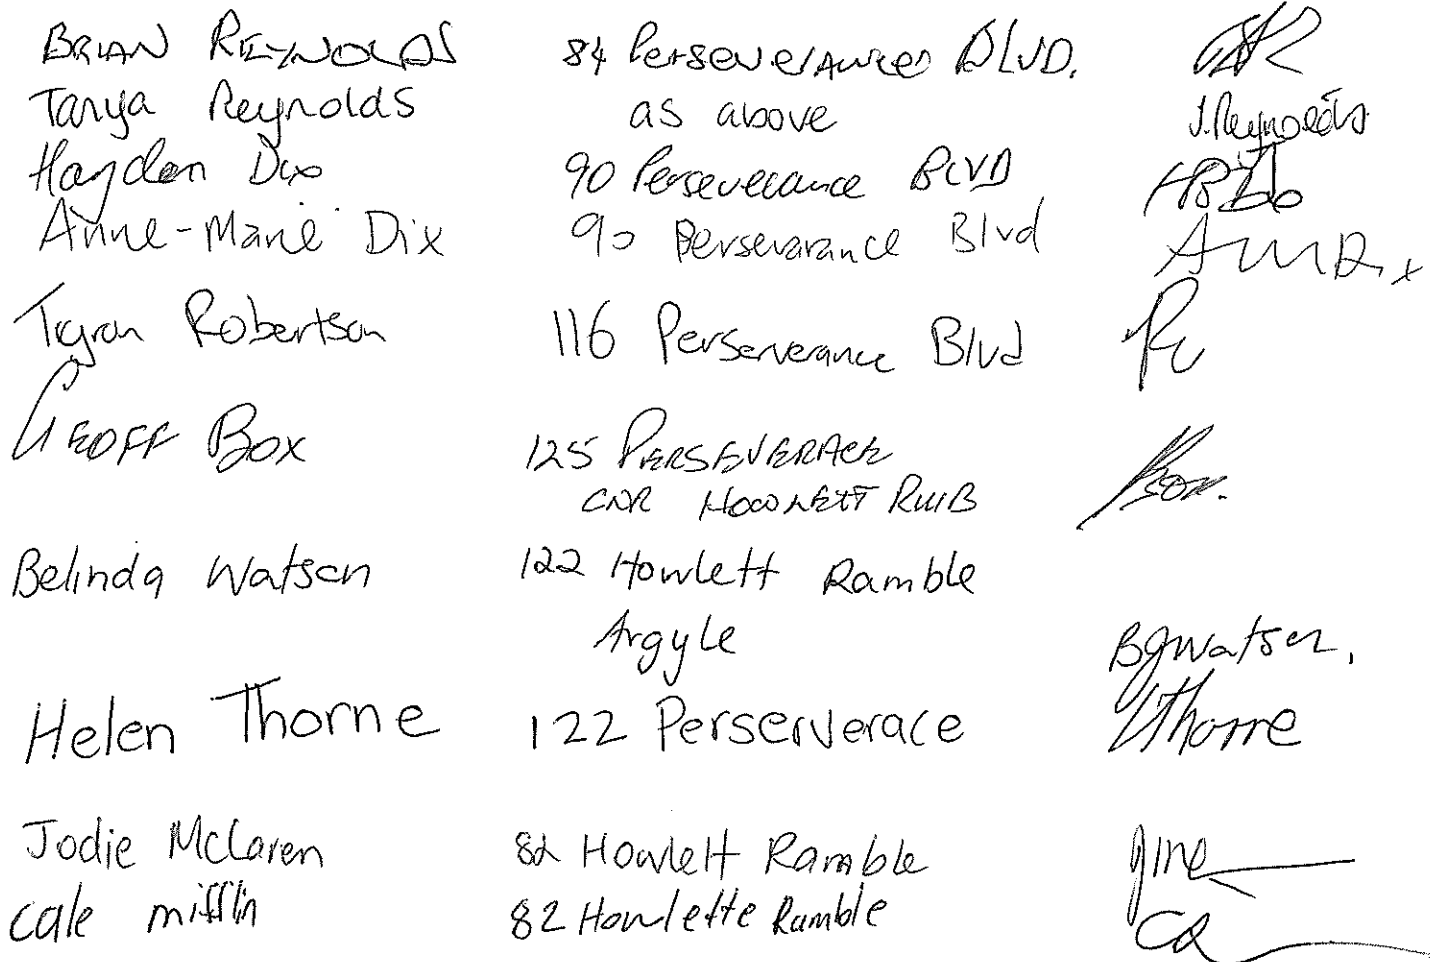 BRIAN REYNOLDS 84 Perseverance BLVD.
Tanya Reynolds as above J.Reynolds
Hayden Dix 90 Perseverance BLVD
Anne-Marie Dix 90 Perseverance Blvd AMDix
Tyron Robertson 116 Perserverance Blvd
GEOFF BOX 125 PERSEVERACE Box.
CNR HOWLETT RMB
Belinda Watson 122 Howlett Ramble
Argyle BJWatson.
Helen Thorne 122 Perserverace HThorne
Jodie McLaren 82 Howlett Ramble
Cale mifflin 82 Howlette Ramble